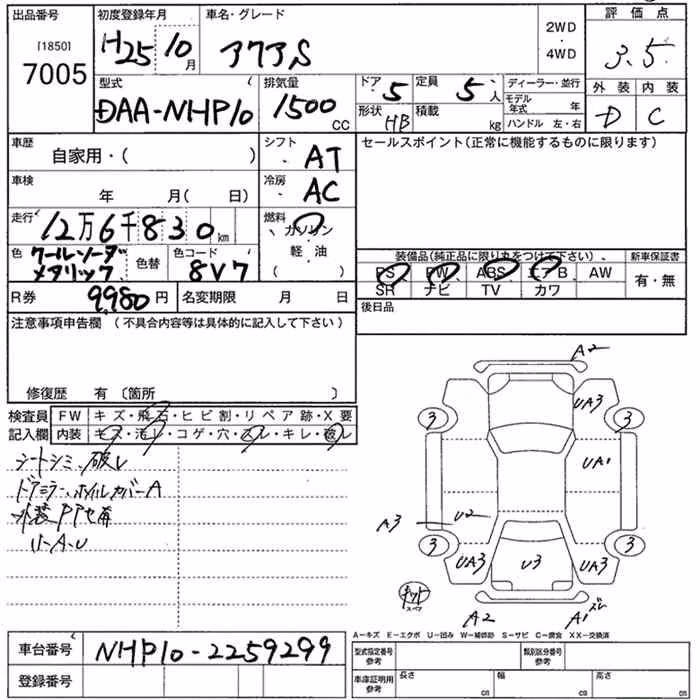 出品番号 初度登録年月 車名・グレード 評価点
[1850] 7005 H25 10月 アクアS 2WD・4WD 3.5
型式 排気量 ドア 定員 ディーラー・並行 外装 内装
DAA-NHP10 1500 CC 5 5人 モデル年式 年 D C
形状 HB 積載 kg ハンドル 左・右
車歴 自家用・( ) シフト AT セールスポイント(正常に機能するものに限ります)
車検 年 月( 日) 冷房 AC
走行 12万6千830km 燃料 ガソリン
軽油
( )
色 クールソーダメタリック 色替 色コード 8V7
装備品(純正品に限り丸をつけて下さい)、 新車保証書
PS PW ABS エアB AW 有・無
SR ナビ TV カワ
R券 9980円 名変期限 月 日 後日品
注意事項申告欄 (不具合内容等は具体的に記入して下さい)
修復歴 有 〔箇所 〕
検査員記入欄 FW キズ・飛石・ヒビ割・リペア跡・X要
内装 キズ・汚レ・コゲ・穴・スレ・キレ・破レ
シートシミ、破レ
ドアミラー、ホイルカバーA
外装PP
リーA・U
A2
3 UA3 3
UA1
A3 U2
3 UA3 U3 UA3 3
キット スペア
A2 A1 ズレ
A-キズ E-エクボ U-凹み W-補修跡 S-サビ C-腐食 XX-交換済
車台番号 NHP10-2259299 型式指定番号 参考 類別区分番号 参考
登録番号 車庫証明用 参考 長さ cm 幅 cm 高さ cm